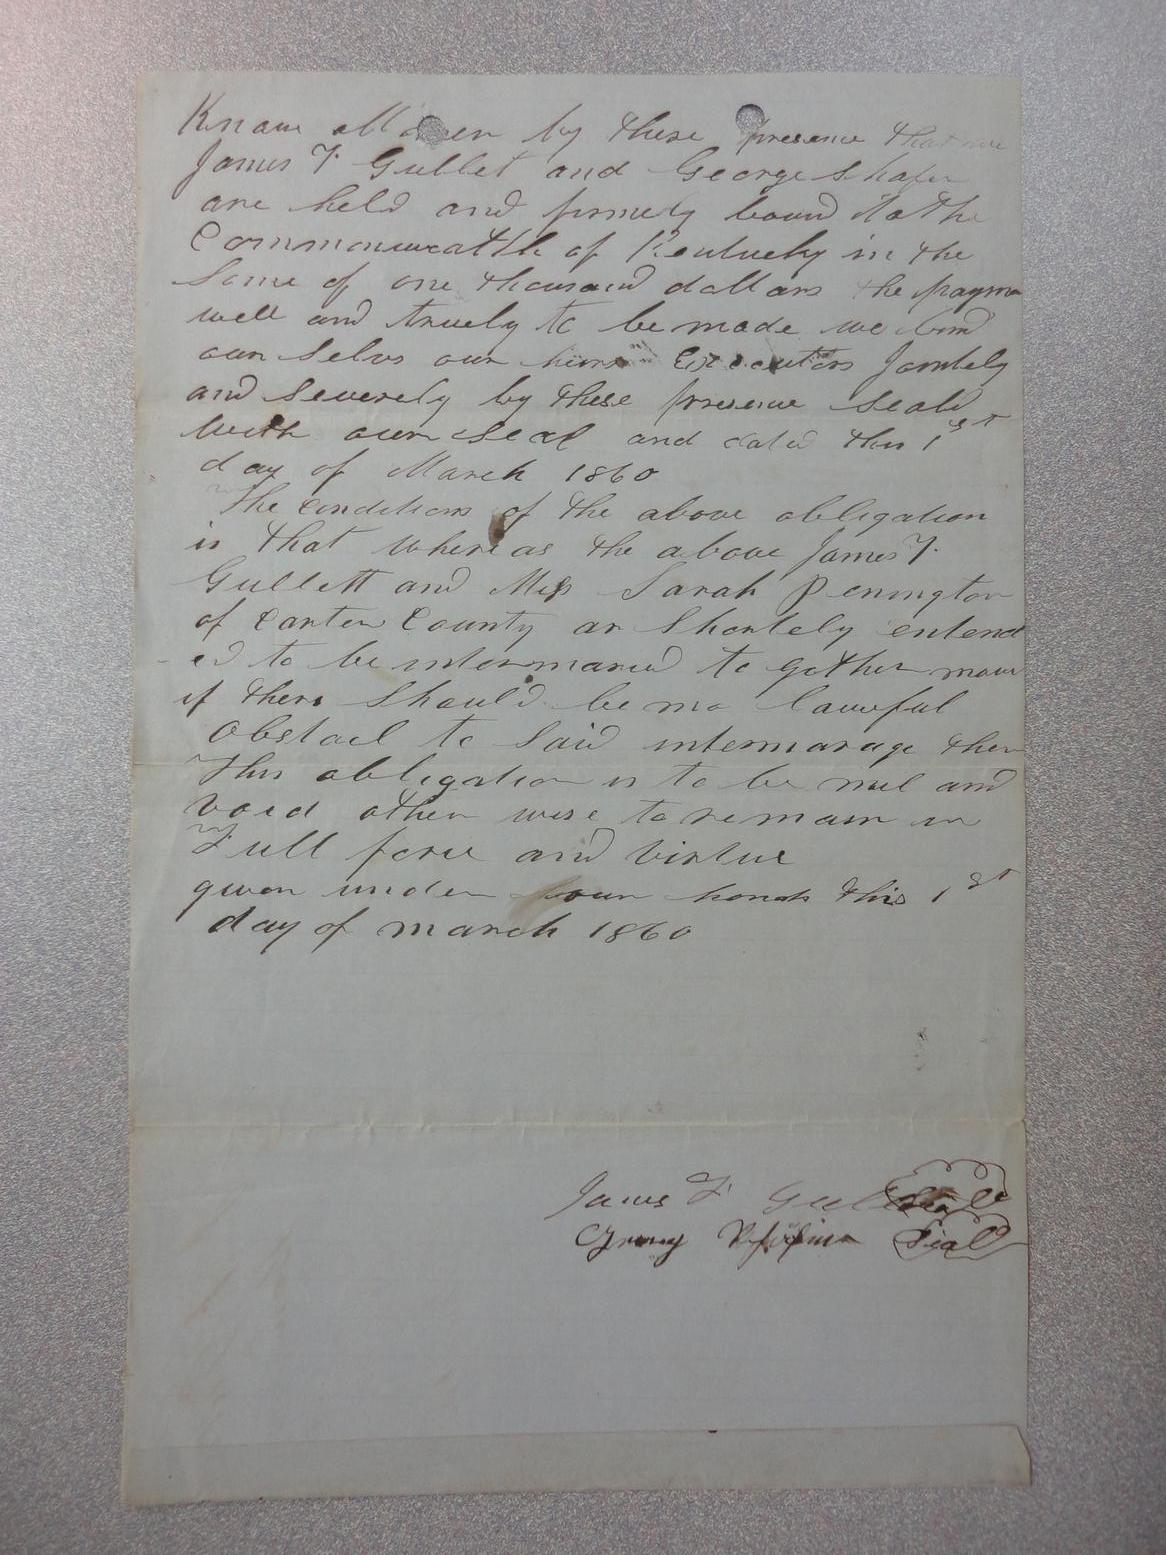 Know all men by these presence that we
James F. Gullet and George Shafer
are held and firmely bound to the
Commonwealth of Kentucky in the
Some of one thousand dollars the payme
well and truely to be made we bind
our selvs our hiers Executors Jointely
and Severely by these presence Seald
with our Seal and dated this 1st
day of March 1860
The conditions of the above obligation
is that where as the above James F.
Gullett and Miss Sarah Penington
of Carter County ar Shortely entend
ed to be intermaried to gether now
if there Should be no lawful
Obstacl to Said intermarage then
This obligation is to be nul and
void other wise to remain in
Full force and virtue
given under our hands this 1st
day of march 1860
James F. Gull Seal
Seal